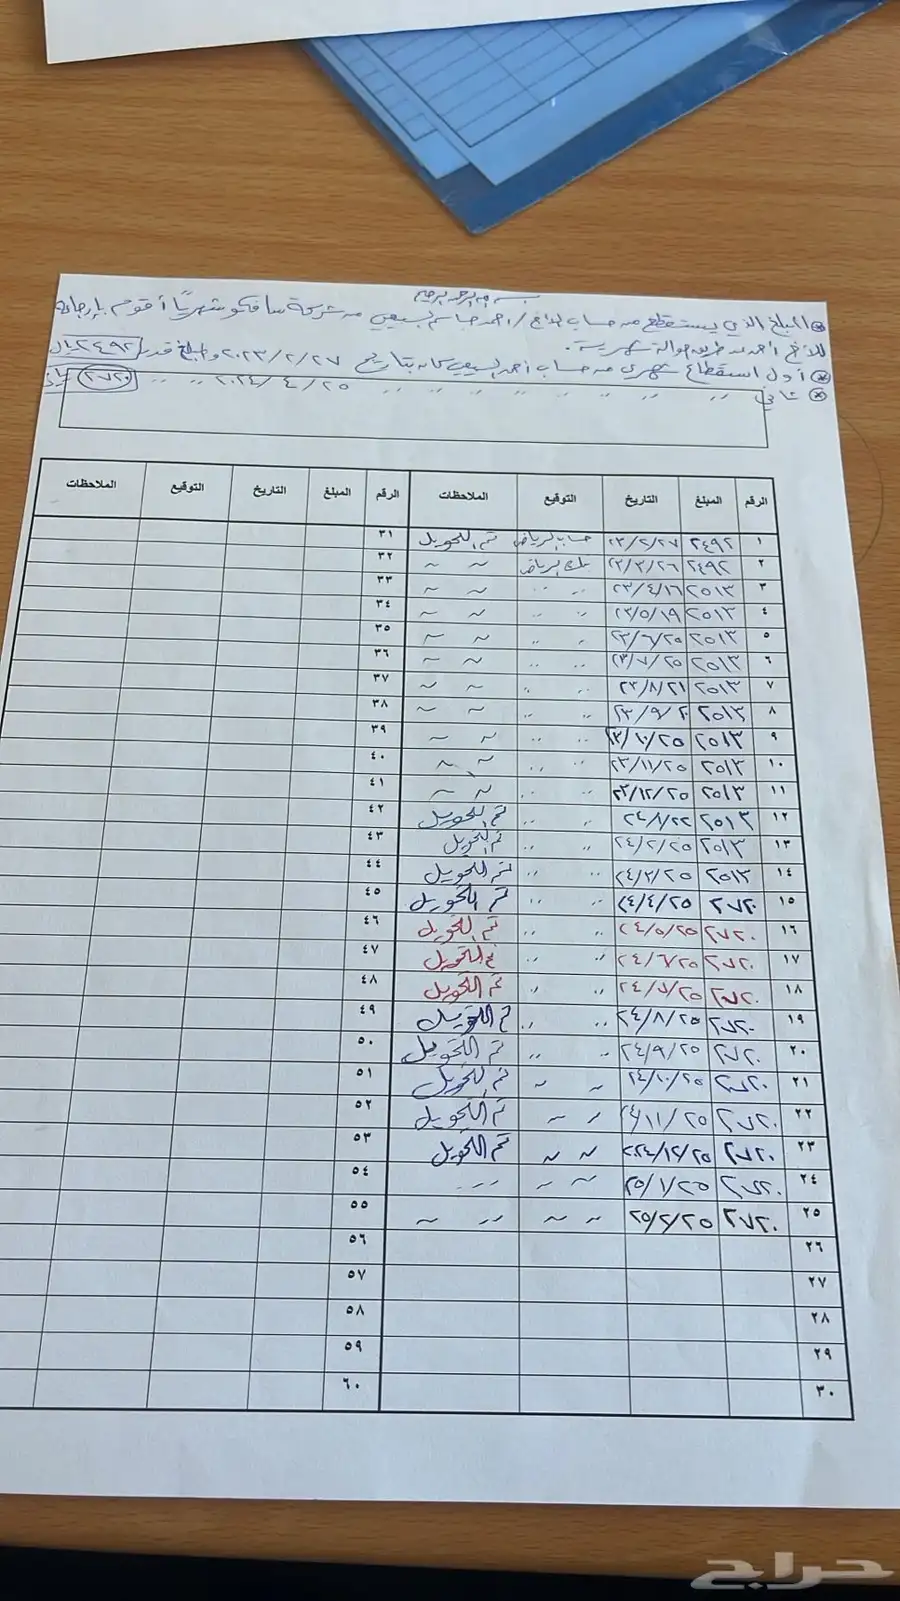 بسم الله الرحمن الرحيم
* المبلغ الذي يستقطع من حساب الأخ / أحمد جاسم السبيعي من شركة سافكو شهرياً أقوم بإرجاعه
للأخ أحمد عن طريق حوالة شهرية.
* أول استقطاع شهري من حساب أحمد السبيعي كان بتاريخ ٢٠٢٣/٢/٢٧ ومبلغ قدره ٢٤٩٢ ريال
* ثاني ,, ,, ,, ,, ,, ,, ٢٠٢٤/٤/٢٥ ,, ,, ٢٧٢٠ ريال
الرقم المبلغ التاريخ التوقيع الملاحظات الرقم المبلغ التاريخ التوقيع الملاحظات
١ ٢٤٩٢ ٢٣/٢/٢٧ حساب الرياض تم التحويل ٣١
٢ ٢٤٩٢ ٢٣/٣/٢٦ بنك الرياض ~ ~ ٣٢
٣ ٢٥١٣ ٢٣/٤/١٦ ,, ,, ~ ~ ٣٣
٤ ٢٥١٣ ٢٣/٥/١٩ ,, ,, ~ ~ ٣٤
٥ ٢٥١٣ ٢٣/٦/٢٥ ,, ,, ~ ~ ٣٥
٦ ٢٥١٣ ٢٣/٧/٢٥ ,, ,, ~ ~ ٣٦
٧ ٢٥١٣ ٢٣/٨/٢١ ,, ,, ~ ~ ٣٧
٨ ٢٥١٣ ٢٣/٩/٢٠ ,, ,, ~ ~ ٣٨
٩ ٢٥١٣ ٢٣/١٠/٢٥ ,, ,, ~ ~ ٣٩
١٠ ٢٥١٣ ٢٣/١١/٢٥ ,, ,, ~ ~ ٤٠
١١ ٢٥١٣ ٢٣/١٢/٢٥ ,, ,, ~ ~ ٤١
١٢ ٢٥١٣ ,, ,, تم التحويل ٤٢
١٣ ٢٥١٣ ٢٤/٢/٢٥ ,, ,, تم التحويل ٤٣
١٤ ٢٥١٣ ٢٤/٣/٢٥ ,, ,, تم التحويل ٤٤
١٥ ٢٧٢٠ ٢٤/٤/٢٥ ,, ,, تم التحويل ٤٥
١٦ ٢٧٢٠ ٢٤/٥/٢٥ ,, ,, تم التحويل ٤٦
١٧ ٢٧٢٠ ٢٤/٦/٢٥ ,, ,, تم التحويل ٤٧
١٨ ٢٧٢٠ ٢٤/٧/٢٥ ,, ,, تم التحويل ٤٨
١٩ ٢٧٢٠ ٢٤/٨/٢٥ ,, ,, تم التحويل ٤٩
٢٠ ٢٧٢٠ ٢٤/٩/٢٥ ,, ,, تم التحويل ٥٠
٢١ ٢٧٢٠ ٢٤/١٠/٢٥ ~ ~ تم التحويل ٥١
٢٢ ٢٧٢٠ ٢٤/١١/٢٥ ~ ~ تم التحويل ٥٢
٢٣ ٢٧٢٠ ~ ~ تم التحويل ٥٣
٢٤ ٢٧٢٠ ٢٥/١/٢٥ ~ ~ ,, ,, ٥٤
٢٥ ٢٧٢٠ ٢٥/٢/٢٥ ~ ~ ~ ~ ٥٥
٢٦ ٥٦
٢٧ ٥٧
٢٨ ٥٨
٢٩ ٥٩
٣٠ ٦٠
حراج